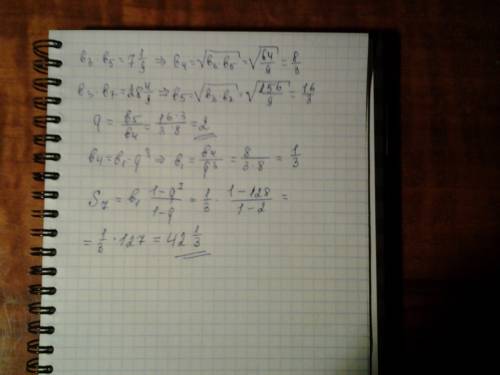 b₃ b₅ = 7 1/9 ⇒ b₄ = √(b₃ b₅) = √(64/9) = 8/3
b₃ · b₇ = 28 4/9 ⇒ b₅ = √(b₃ b₇) = √(256/9) = 16/3
q = b₅/b₄ = 16·3/3·8 = 2
b₄ = b₁ · q³ ⇒ b₁ = b₄/q³ = 8/3·8 = 1/3
S₇ = b₁ 1-q⁷/1-q = 1/3 · 1-128/1-2 =
= 1/3 · 127 = 42 1/3